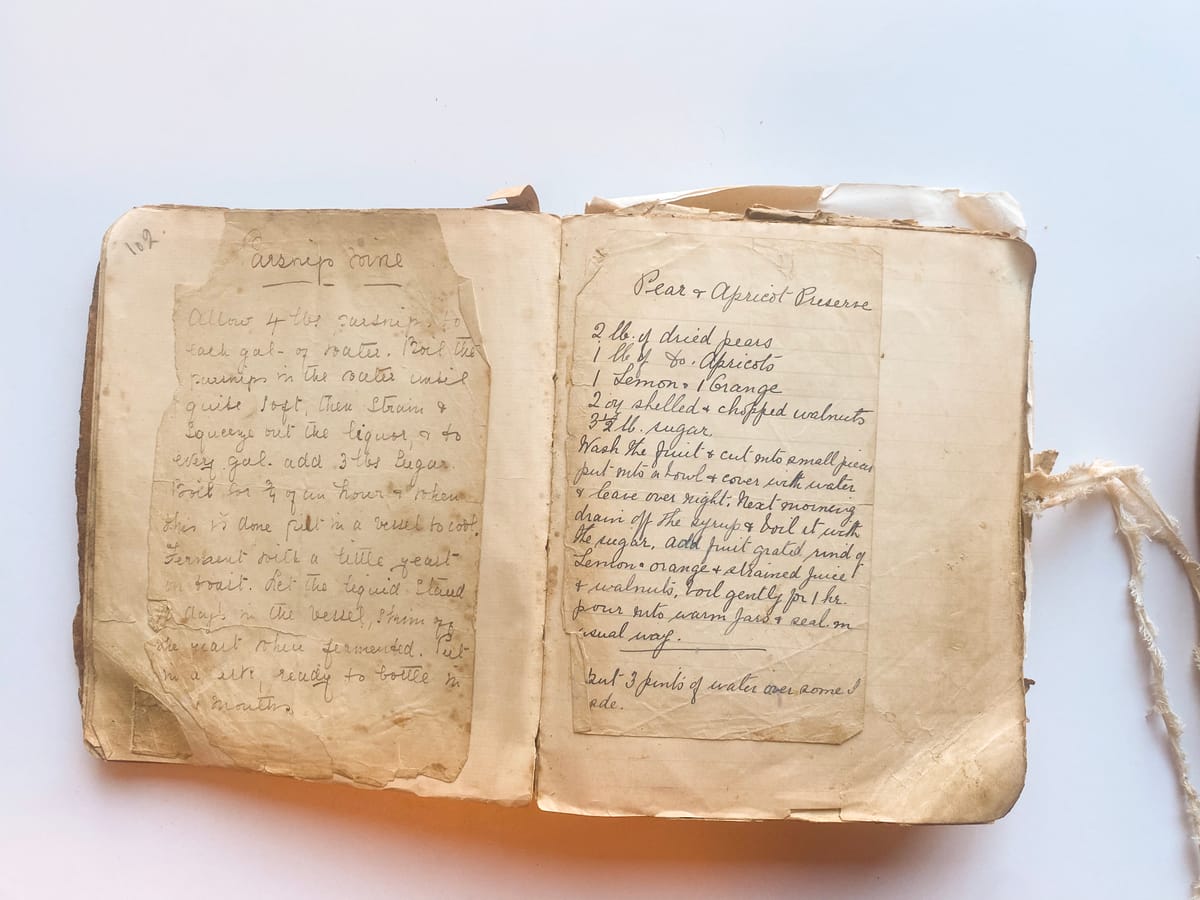 102
Parsnip Wine
Allow 4 lbs parsnips to
each gal- of water. Boil the
parsnips in the water until
quite soft, then strain &
squeeze out the liquor, & to
every gal. add 3 lbs sugar.
Boil for ¾ of an hour & when
this is done put in a vessel to cool.
Ferment with a little yeast
on toast. Let the liquid stand
days in the vessel, skim off
the yeast when fermented. Put
in a , ready to bottle in
months
Pear & Apricot Preserve
2 lb. of dried pears
1 lb of do. Apricots
1 Lemon & 1 Orange
2 oz shelled & chopped walnuts
3½ lb. sugar.
Wash the fruit & cut into small pieces
put into a bowl & cover with water
& leave over night. Next morning
drain off the syrup & boil it with
the sugar. add fruit grated rind of
Lemon & orange & strained juice
& walnuts, boil gently for 1 hr.
pour into warm jars & seal in
usual way.
put 3 pints of water over some I